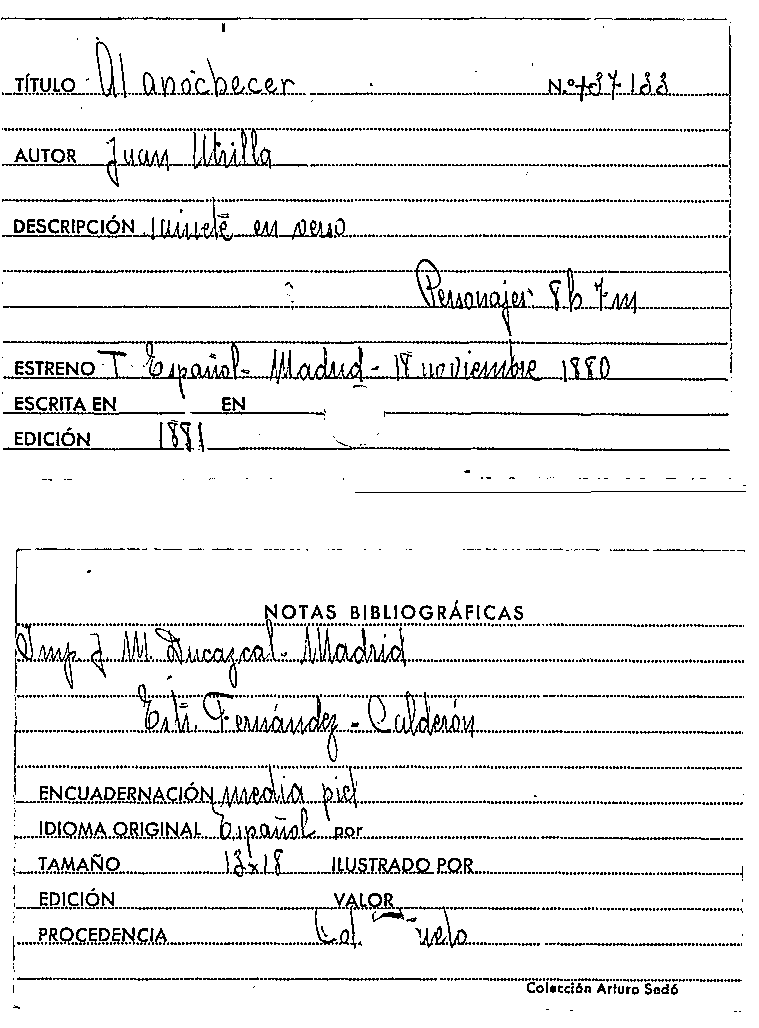 TÍTULO Al anochecer N.º 37-133
AUTOR Juan Utrilla
DESCRIPCIÓN sainete en verso
Personajes 8 h 7 m
ESTRENO T. Español- Madrid - 18 noviembre 1880
ESCRITA EN EN
EDICIÓN 1881
NOTAS BIBLIOGRÁFICAS
Imp. J. M. Ducazcal - Madrid
Estr. Fernández - Calderón
ENCUADERNACIÓN media piel
IDIOMA ORIGINAL Español por
TAMAÑO 13x18 ILUSTRADO POR
EDICIÓN VALOR
PROCEDENCIA Col.
Colección Arturo Sedó